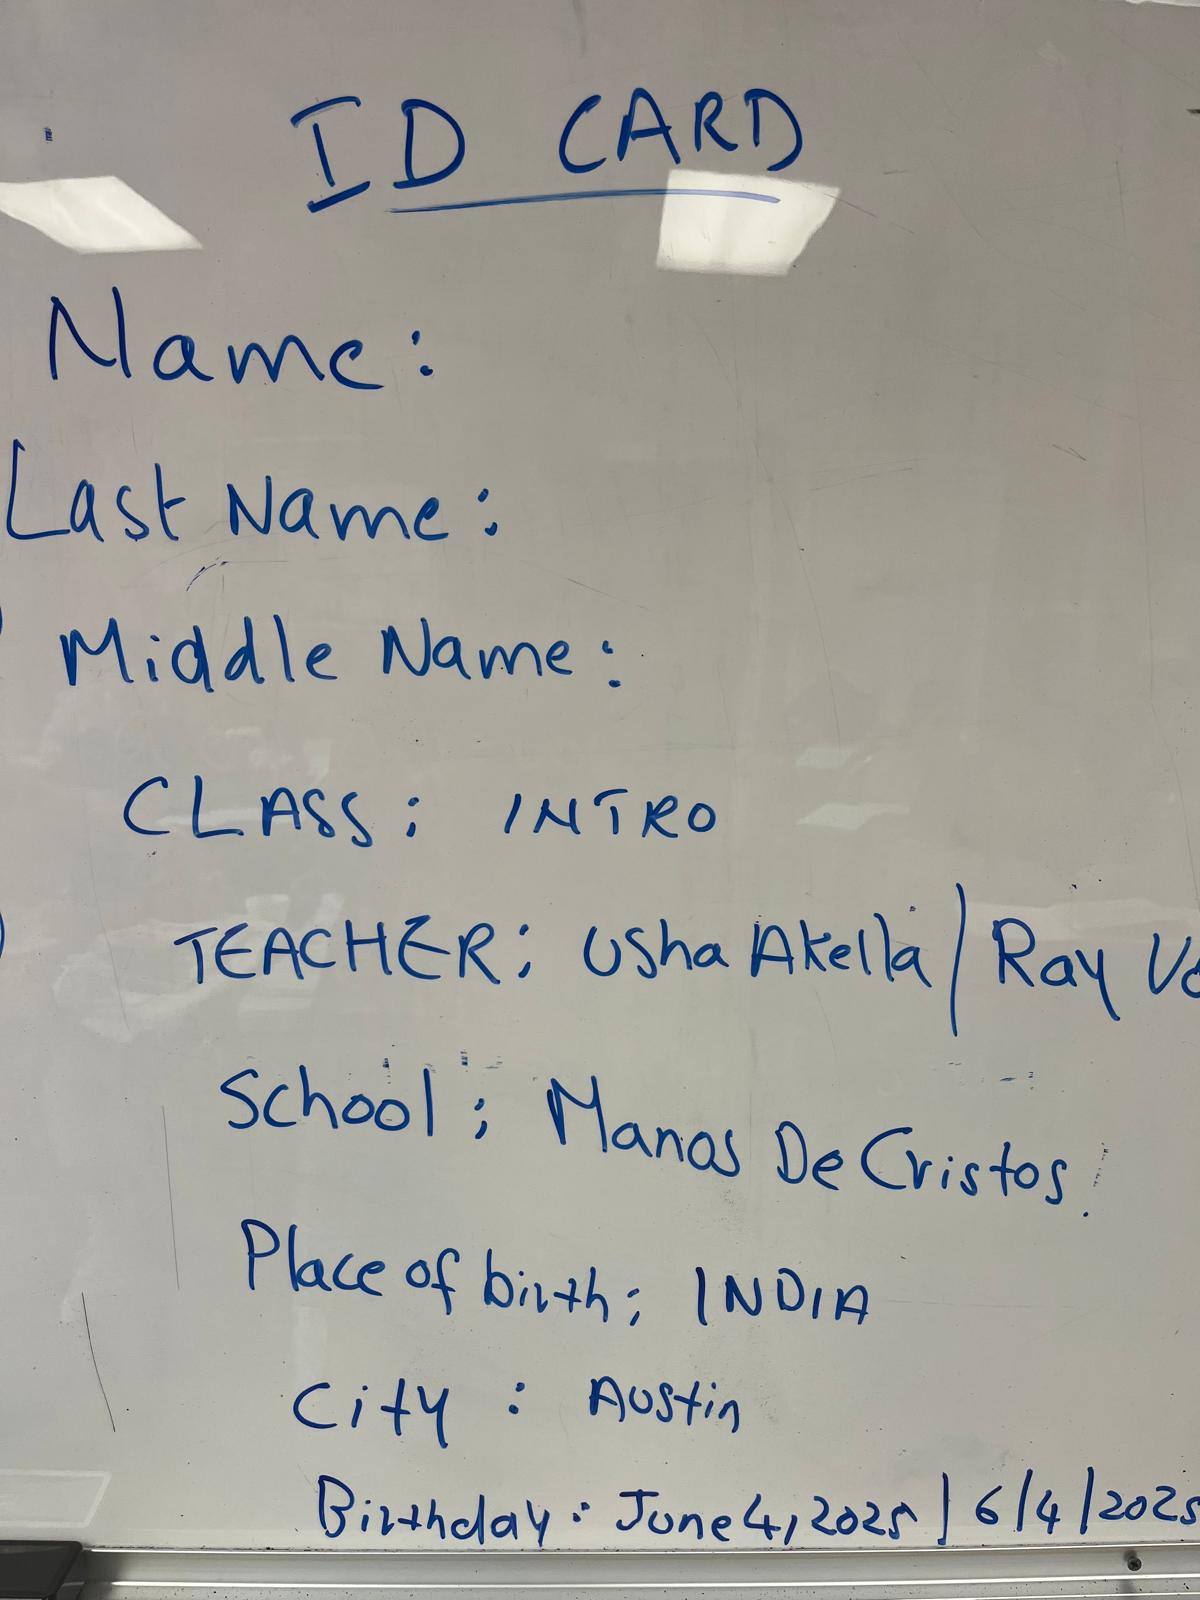 ID CARD
Name:
Last Name:
Middle Name:
CLASS: INTRO
TEACHER: Usha Akella / Ray
School: Manos De Cristos!
Place of birth: INDIA
City : Austin
Birthday: June 4, 2025 | 6/4/2025